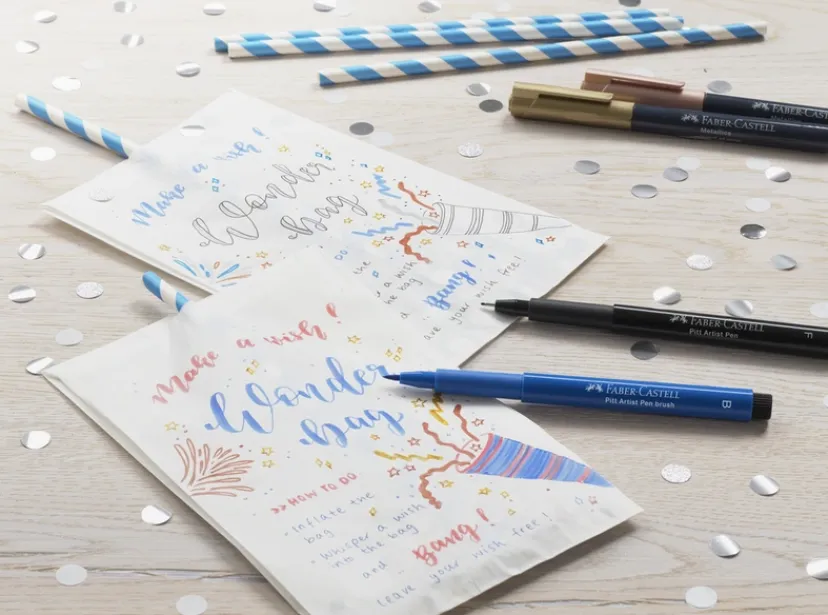 FABER-CASTELL
Metallics
FABER-CASTELL
Metallics
Make a wish!
Wonder
bag
DO
a wish
he bag
Bang!
d
ave your wish free!
FABER-CASTELL
Pitt Artist Pen
F
FABER-CASTELL
Pitt Artist Pen brush
B
Make a wish!
Wonder
bag
>> HOW TO DO
- Inflate the
bag
- Whisper a wish
into the bag
and ..
Bang!
leave your wish free!